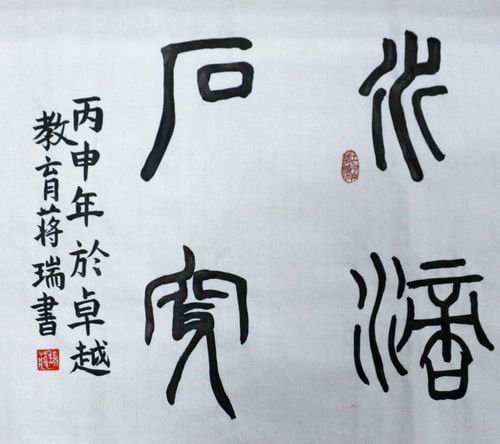 水滴
石穿
丙申年於卓越
教育蒋瑞書